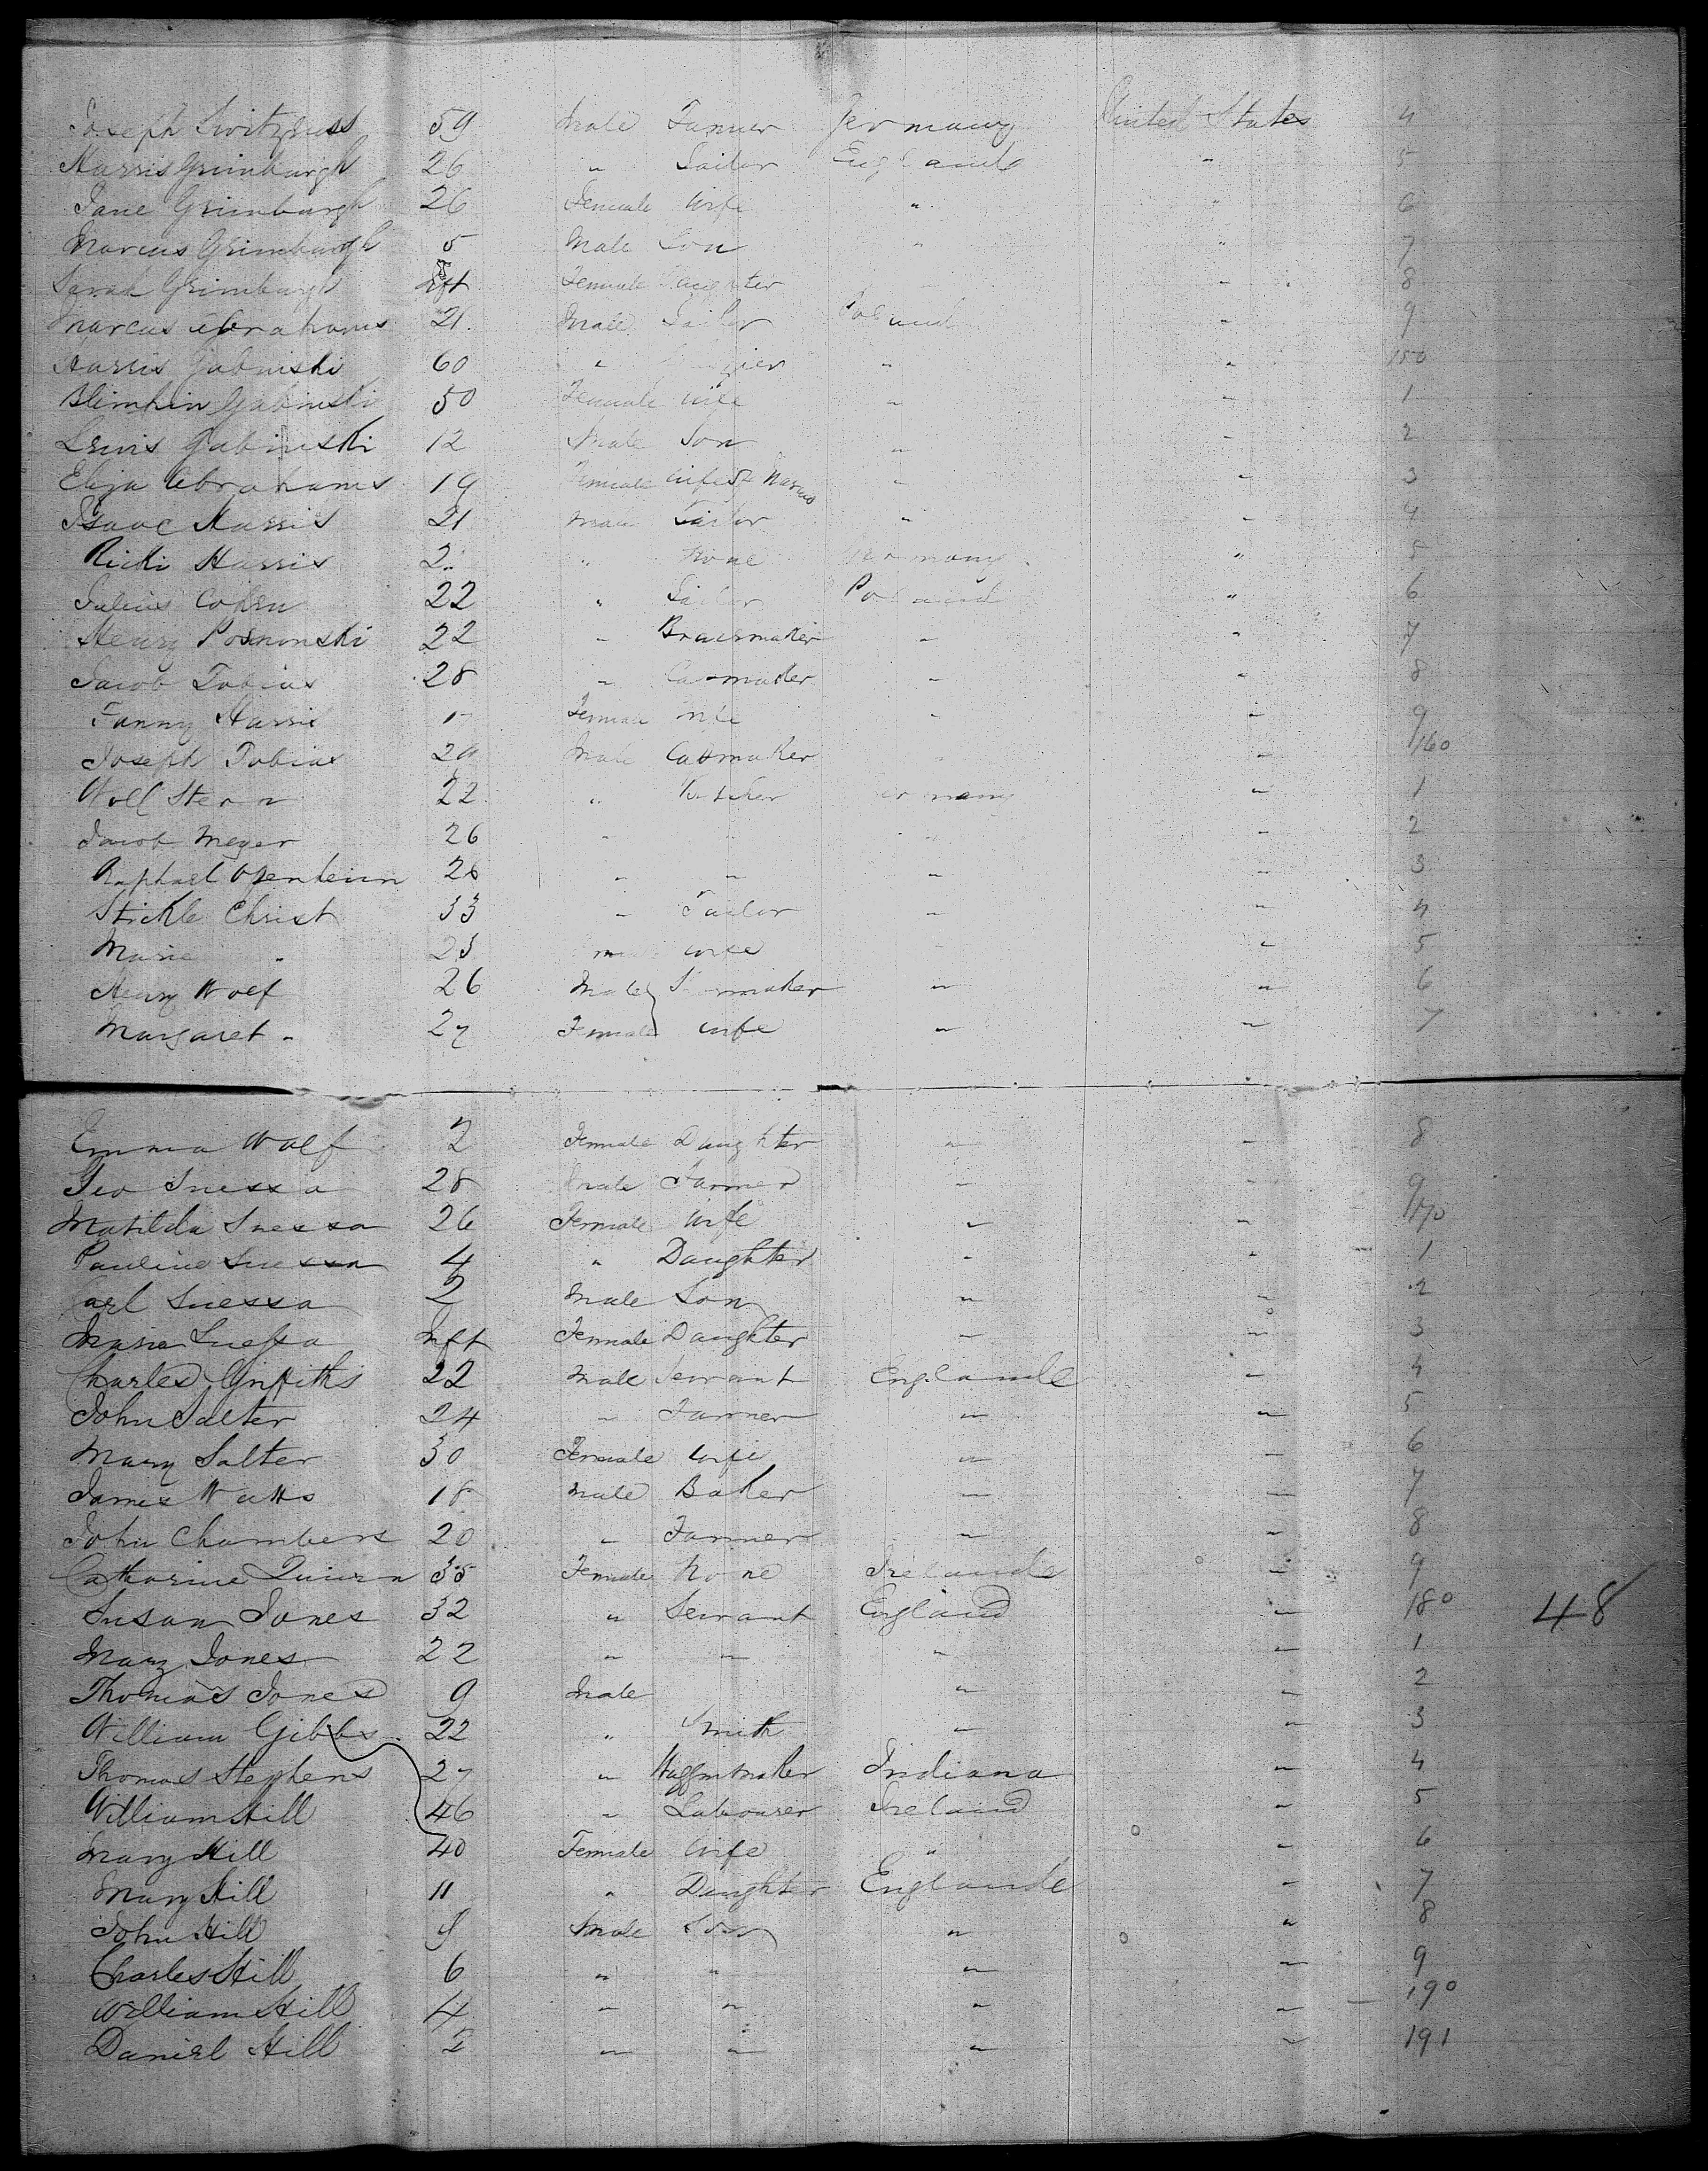 Joseph 59 Male Farmer Germany United States 4
Harris Grimburgh 26 " Tailor England " 5
Jane Grimburgh 26 Female Wife " " 6
Marcus Grimburgh 5 Male Son " " 7
Sarah Grimburgh Inft Female Daughter " 8
Marcus Abrahams 21 Male Tailor Poland " 9
Harris Gabinski 60 " " " 150
Gabinski 50 Female Wife " " 1
Lewis Gabinski 12 Male Son " " 2
Eliza Abrahams 19 Female Wife to Marcus " " 3
Isaac Harris 21 Male Tailor " " 4
Ricki Harris " None Germany " 5
Julius Cohen 22 " Tailor Poland " 6
Henry Posnonski 22 " " " 7
Jacob Tobias 28 " Capmaker " " 8
Fanny Harris Female Wife " " 9
Joseph Tobias 29 Male Capmaker " " 160
Wolf Stern 22 " Butcher Germany " 1
Jacob Meyer 26 " " " " 2
Raphael Openheim 26 " " " " 3
Stickle Christ 33 " Tailor " " 4
Marie " 23 Female Wife " " 5
Henry Wolf 26 Male Shoemaker " " 6
Margaret " 27 Female Wife " " 7
Emma Wolf 2 Female Daughter " " 8
Geo Suessa 28 Male Farmer " " 9
Matilda Suessa 26 Female Wife " " 170
Pauline Suessa 4 " Daughter " " 1
Carl Suessa 2 Male Son " " 2
Maria Suessa Inft Female Daughter " " 3
Charles Griffiths 22 Male Servant England " 4
John Salter 24 " Farmer " " 5
Mary Salter 30 Female Wife " " 6
James Watts 18 Male Baker " " 7
John Chambers 20 " Farmer " " 8
Catharine 35 Female None Ireland " 9
Susan Jones 32 " Servant England " 180 48
Mary Jones 22 " " " " 1
Thomas Jones 9 Male " " 2
William Gibbs 22 " Smith " " 3
Thomas Stephens 27 " Indiana " 4
William Hill 46 " Labourer Ireland " 5
Mary Hill 40 Female Wife " " 6
Mary Hill 11 " Daughter England " 7
John Hill Male Son " " 8
Charles Hill 6 " " " " 9
William Hill 4 " " " " 190
Daniel Hill 2 " " " " 191